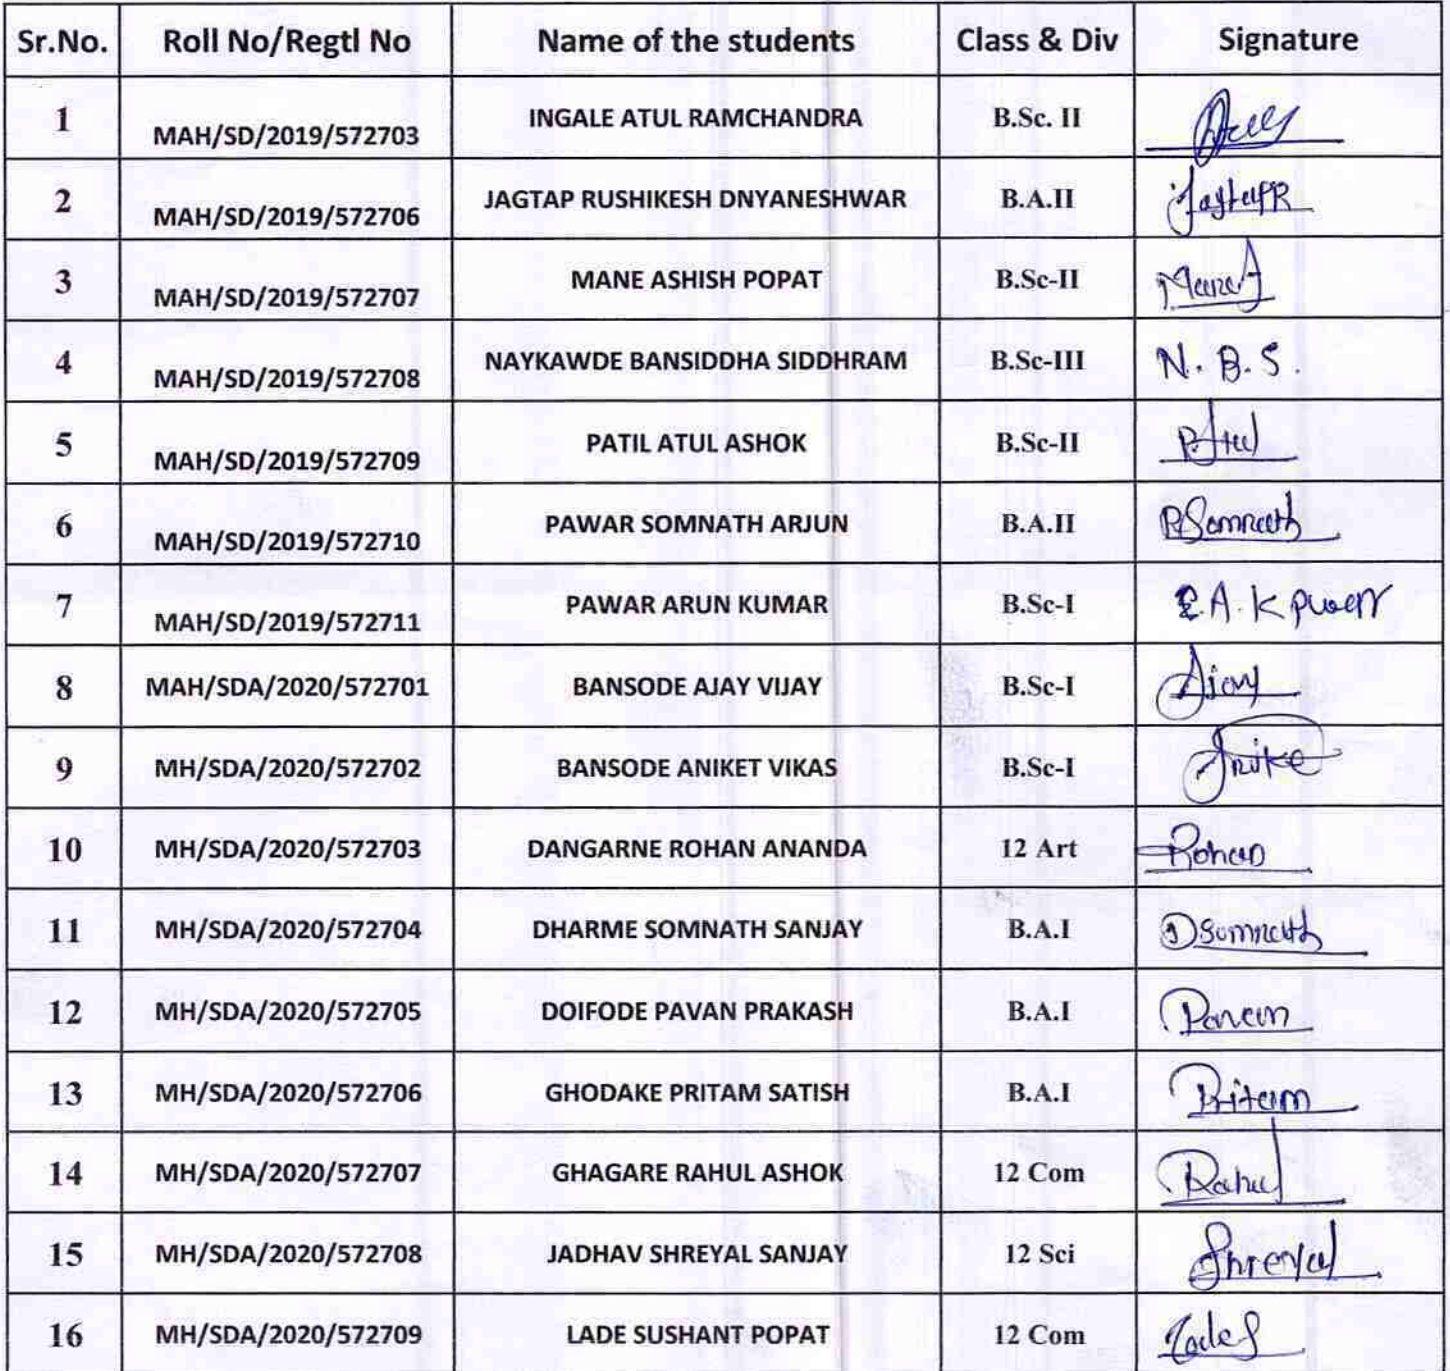 Sr.No. Roll No/Regtl No Name of the students Class & Div Signature
1 MAH/SD/2019/572703 INGALE ATUL RAMCHANDRA B.Sc. II
2 MAH/SD/2019/572706 JAGTAP RUSHIKESH DNYANESHWAR B.A.II JagtapR
3 MAH/SD/2019/572707 MANE ASHISH POPAT B.Sc-II ManeA
4 MAH/SD/2019/572708 NAYKAWDE BANSIDDHA SIDDHRAM B.Sc-III N. B. S.
5 MAH/SD/2019/572709 PATIL ATUL ASHOK B.Sc-II
6 MAH/SD/2019/572710 PAWAR SOMNATH ARJUN B.A.II PSomnath
7 MAH/SD/2019/572711 PAWAR ARUN KUMAR B.Sc-I
8 MAH/SDA/2020/572701 BANSODE AJAY VIJAY B.Sc-I Ajay
9 MH/SDA/2020/572702 BANSODE ANIKET VIKAS B.Sc-I
10 MH/SDA/2020/572703 DANGARNE ROHAN ANANDA 12 Art Rohan
11 MH/SDA/2020/572704 DHARME SOMNATH SANJAY B.A.I DSomnath
12 MH/SDA/2020/572705 DOIFODE PAVAN PRAKASH B.A.I Pavan
13 MH/SDA/2020/572706 GHODAKE PRITAM SATISH B.A.I Pritam
14 MH/SDA/2020/572707 GHAGARE RAHUL ASHOK 12 Com Rahul
15 MH/SDA/2020/572708 JADHAV SHREYAL SANJAY 12 Sci Shreyal
16 MH/SDA/2020/572709 LADE SUSHANT POPAT 12 Com LadeS